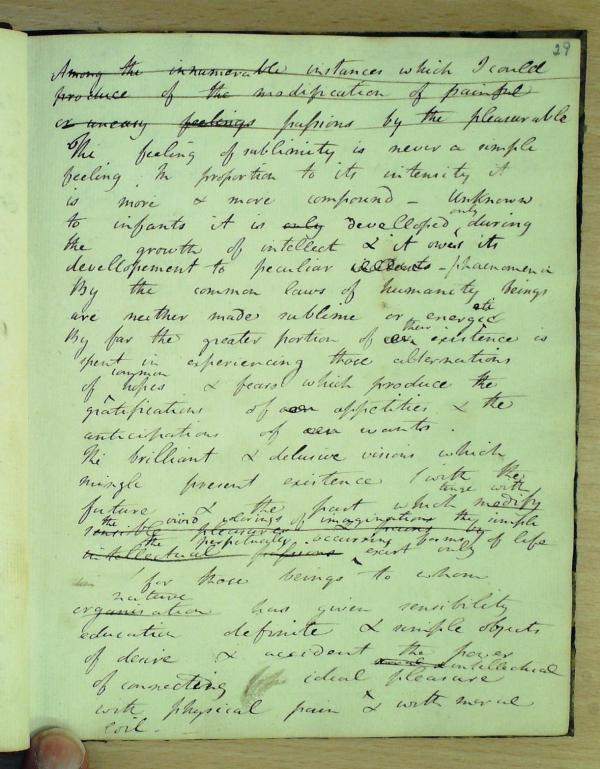 29
Among the innumerable instances which I could
produce of the modification of painful
or uneasy feelings passions by the pleasurable
The feeling of sublimity is never a simple
feeling. In proportion to its intensity it
is more & more compound – Unknown
to infants it is only devellopped only during
the growth of intellect & it owes its
devellopement to peculiar accidents – phænomena
By the common laws of humanity beings
are neither made sublime or energetic
By far the greater portion of our their existence is
spent in experiencing those alternations
of common hopes & fears which produce the
gratifications of our appetities & the
anticipations of our wants.
The brilliant & delusive visions which
mingle present existence with the
future & the past which modify tinge with
sensible pleasures & pains by the vivid colorings of imaginations the simple
intellectual passions the perpetually occurring forms of life exist only
for those beings to whom
nature
organisation has given sensibility
education definite & simple objects
of desire & accident the power
of connecting ideal & intellectual pleasure
with physical pain & with moral
evil.